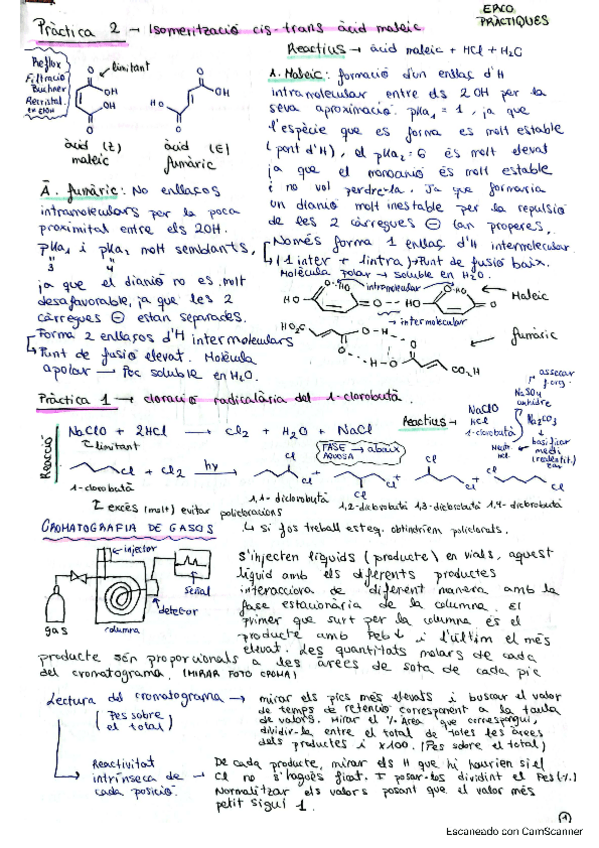 EPCO
PRÀCTIQUES
Pràctica 2 → Isomerització cis-trans àcid maleic
Reactius → àcid maleic + HCl + H2O
Reflux
Filtració
Büchner
Recristal.
limitant
O
OH
OH
O
HO
O
OH
O
àcid (Z)
maleic
àcid (E)
fumàric
A. Maleic: formació d'un enllaç d'H
intramolecular entre els 2 OH per la
seva aproximació. pKa1 = 1, ja que
l'espècie que es forma es molt estable
(pont d'H), el pKa2 = 6 és molt elevat
ja que el monoanió és molt estable
i no vol perdre-la. Ja que formaria
un dianió molt inestable per la repulsió
de les 2 càrregues ⊖ tan properes.
Només forma 1 enllaç d'H intermolecular
(1 inter + 1 intra) → Punt de fusió baix.
Molècula polar → soluble en H2O.
A. fumàric: No enllaços
intramoleculars per la poca
proximitat entre els 2OH.
pKa1 i pKa2 molt semblants,
3 4
ja que el dianió no es molt
desafavorable, ja que les 2
càrregues ⊖ estan separades.
Forma 2 enllaços d'H intermoleculars
Punt de fusió elevat. Molècula
apolar → Poc soluble en H2O.
intramolecular
Maleic
intermolecular
HO2C
CO2H
fumàric
Pràctica 1 → cloració radicalària del 1-clorobutà.
Reacció
NaClO + 2HCl → Cl2 + H2O + NaCl
limitant
FASE AQUOSA → abaix
Reactius →
NaClO
HCl
1-clorobutà
Na2SO4
anhidre
Na2CO3
basificar
medi
Cl + Cl2
hν
Cl
Cl
+
Cl
Cl
+
Cl
Cl
+
Cl
Cl
1-clorobutà
1,1-diclorobutà 1,2-diclorobutà 1,3-diclorobutà 1,4-diclorobutà
excès (molt) evitar policloracions
↳ si fos treball esteq. obtindríem policlorats.
CROMATOGRAFIA DE GASOS
injector
señal
detector
gas
columna
S'injecten líquids (producte) en vials, aquest
líquid amb els diferents productes
interacciona de diferent manera amb la
fase estacionària de la columna. El
primer que surt per la columna és el
producte amb Peb↓ i l'últim el més
elevat. Les quantitats molars de cada
producte són proporcionals a les àrees de sota de cada pic
del cromatograma. (MIRAR FOTO CROMA)
Lectura del cromatograma →
(Pes sobre
el total)
mirar els pics més elevats i buscar el valor
de temps de retenció corresponent a la taula
de valors. Mirar el % Àrea que correspongui,
dividir-la entre el total de totes les àrees
dels productes i x100. (Pes sobre el total)
Reactivitat
intrínseca de →
cada posició.
De cada producte, mirar els H que hi haurien si el
Cl no s'hagués ficat. I posar-los dividint el Pes (%)
Normalitzar els valors posant que el valor més
petit sigui 1.
1
Escaneado con CamScanner